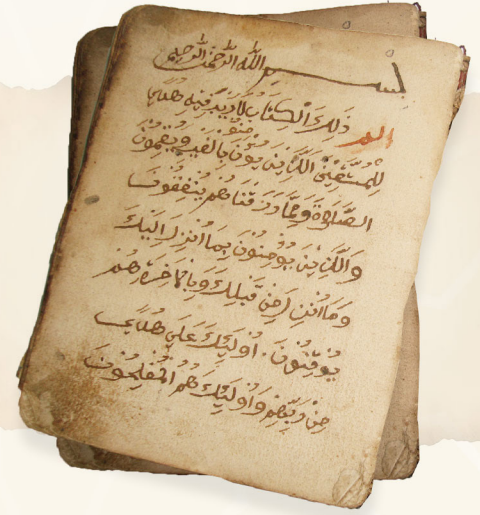 بسم الله الرحمن الرحيم
الم ذَلِكَ الْكِتَابُ لَا رَيْبَ فِيهِ هُدًى
لِلْمُتَّقِينَ الَّذِينَ يُؤْمِنُونَ بِالْغَيْبِ وَيُقِيمُونَ
الصَّلَوٰةَ وَمِمَّا رَزَقْنَاهُمْ يُنْفِقُونَ
وَالَّذِينَ يُؤْمِنُونَ بِمَا أُنْزِلَ إِلَيْكَ
وَمَا أُنْزِلَ مِنْ قَبْلِكَ وَبِالْآخِرَةِ هُمْ
يُوقِنُونَ . أُولَئِكَ عَلَى هُدًى
مِنْ رَبِّهِمْ وَأُولَئِكَ هُمُ الْمُفْلِحُونَ